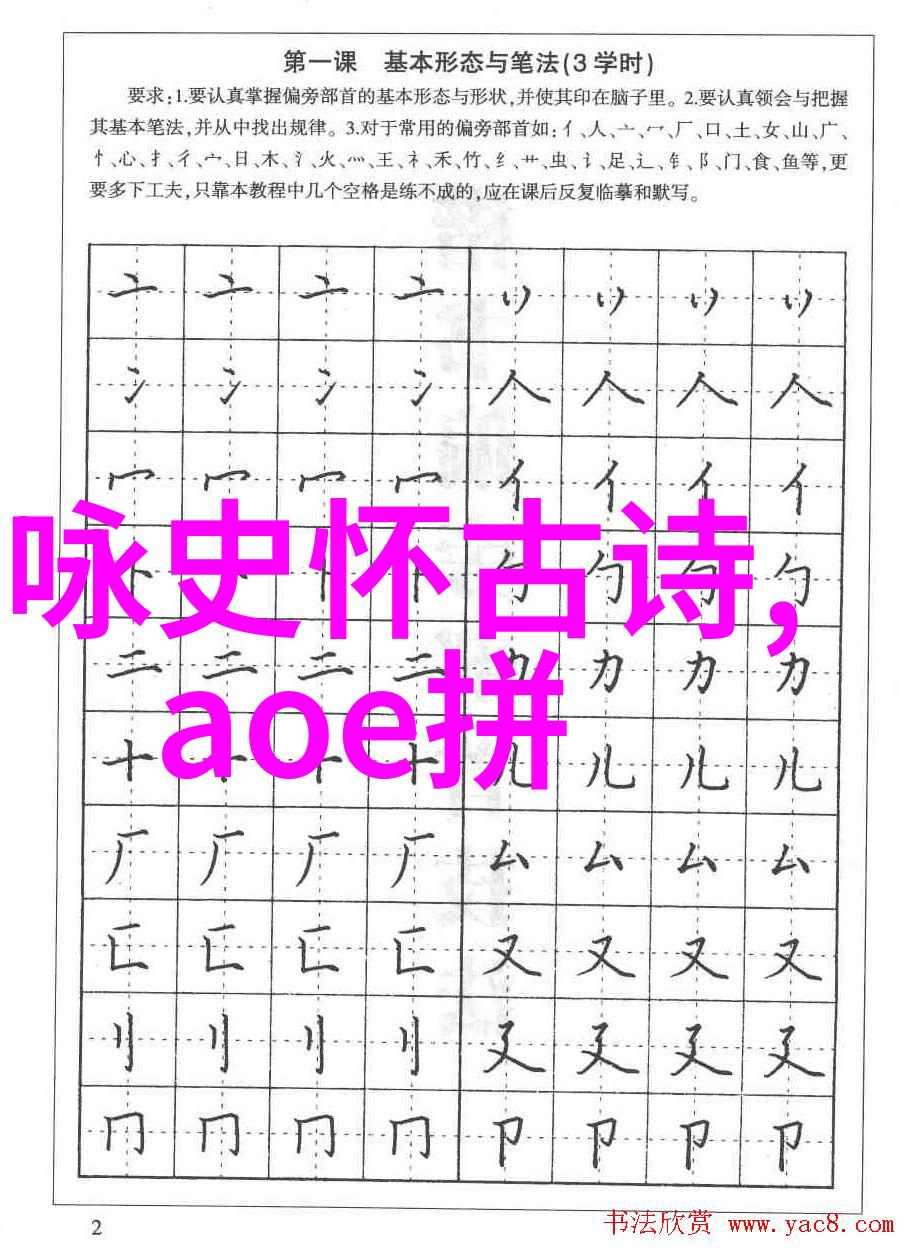 第一课 基本形态与笔法(3学时)
要求:1.要认真掌握偏旁部首的基本形态与形状,并使其印在脑子里。2.要认真领会与把握
其基本笔法,并从中找出规律。3.对于常用的偏旁部首如:亻、人、亠、冖、厂、口、土、女、山、广、
忄、心、扌、彳、宀、日、木、氵、火、灬、王、礻、禾、竹、纟、艹、虫、讠、足、辶、钅、阝、门、食、鱼等,更
要多下工夫,只靠本教程中几个空格是练不成的,应在课后反复临摹和默写。
亠 亠 亠 亠 丷 丷 丷 丷
冫 冫 冫 冫 人 人 人 人
冖 冖 冖 冖 亻 亻 亻 亻
咏史怀古诗,
卜 卜 卜 勹 勹 勹 勹
二 二 二 二 力 力 力 力
aoe拼
十 十 十 十 儿 儿 儿 儿
厂 厂 厂 厂 厶 厶 厶 厶
匚 匚 匚 匚 又 又 又 又
刂 刂 刂 刂 廴 廴 廴 廴
冂 冂 冂 冂 卩 卩 卩 卩
2
书法欣赏 www.yac8.com